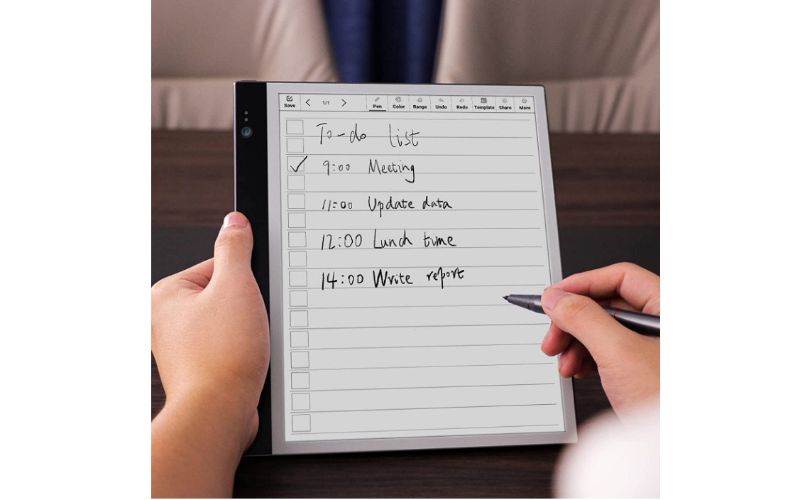 Save 1/1 Pen Color Range Undo Redo Template Share More
To-do list
9:00 Meeting
11:00 Update data
12:00 Lunch time
14:00 Write report